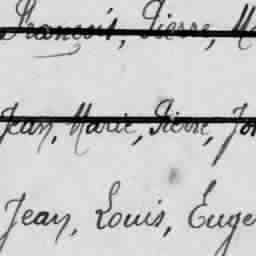 François, Pierre, Ma
Jean, Marie, Pierre, Jo
Jean, Louis, Euge